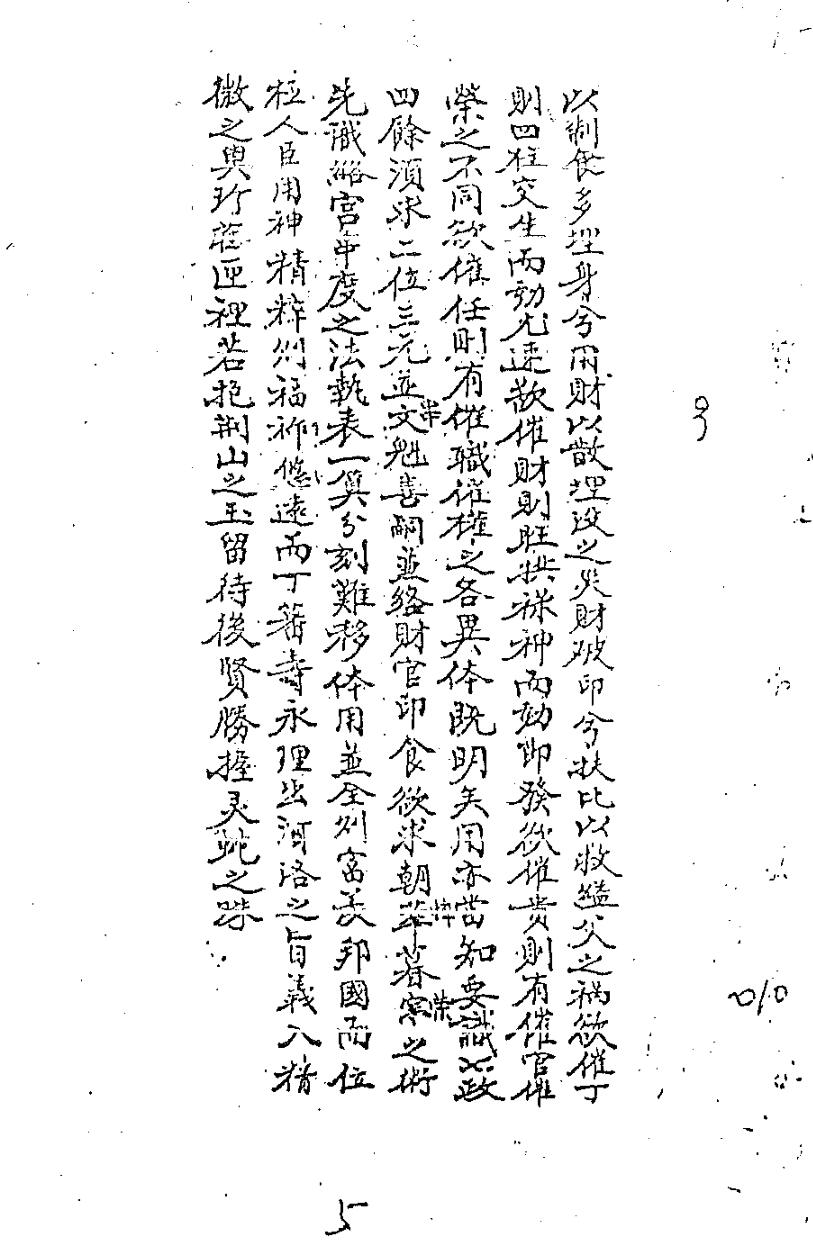 以制食多埋身兮用財以散埋没之災財破印兮扶比以救盡父之禍欲催丁
則四柱交生而効尤速歡催財則旺拱祿神而効即發欲催贵則有催官催
榮之不同欲催任則有催職催權之各異体既明矣用亦當知要識七政
四餘須求二位三元並文魁喜嗣並絡財官印食欲求朝葬暮榮之術
先識絡宮牵度之法執表一算分刻難移体用並全則富美邦國而位
極人臣用神精粹則福祚悠遠而丁蕃壽永理出河洛之旨義入精
微之奥珍藏匣裡若抱荆山之玉留待後賢勝握灵虵之珠
5